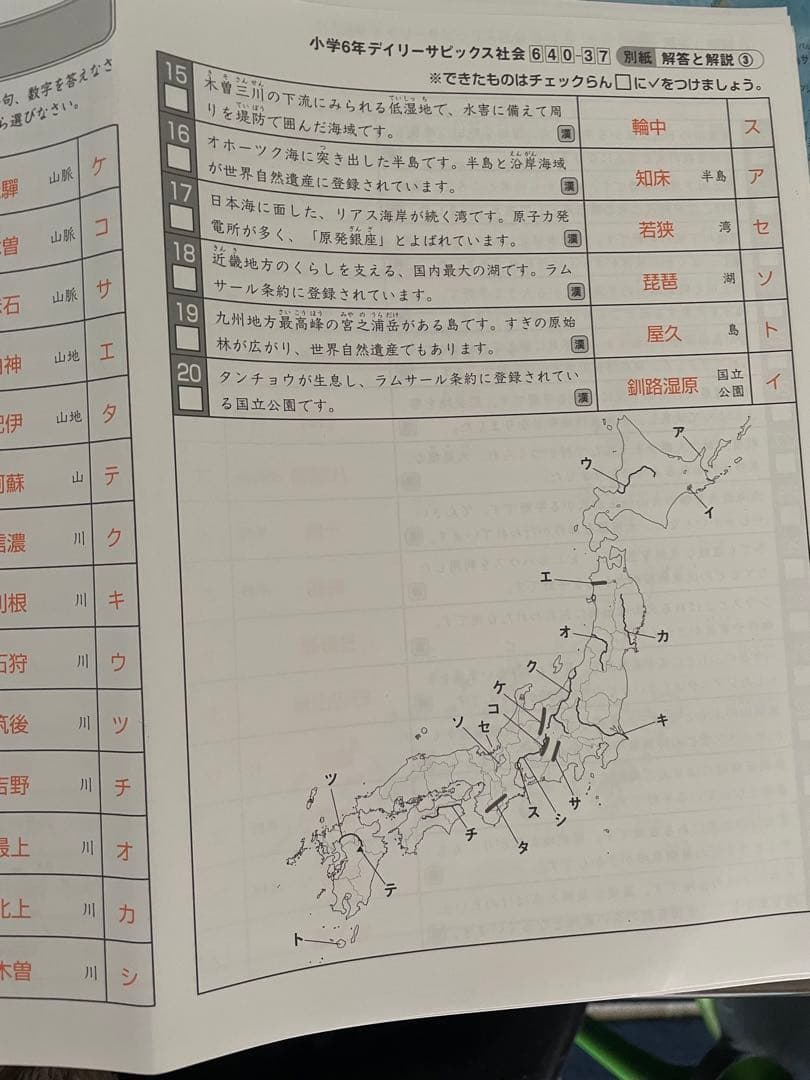 句、数字を答えなさ
ら選びなさい。
驒 山脈 ケ
曽 山脈 コ
石 山脈 サ
神 山地 エ
紀伊 山地 タ
阿蘇 山 テ
信濃 川 ク
利根 川 キ
石狩 川 ウ
筑後 川 ツ
吉野 川 チ
最上 川 オ
北上 川 カ
木曽 川 シ
小学6年デイリーサピックス社会640-37 別紙 解答と解説③
※できたものはチェックらん□に✓をつけましょう。
15 木曽三川の下流にみられる低湿地で、水害に備えて周
りを堤防で囲んだ海域です。 漢 輪中 ス
16 オホーツク海に突き出した半島です。半島と沿岸海域
が世界自然遺産に登録されています。 漢 知床 半島 ア
17 日本海に面した、リアス海岸が続く湾です。原子力発
電所が多く、「原発銀座」とよばれています。 漢 若狭 湾 セ
18 近畿地方のくらしを支える、国内最大の湖です。ラム
サール条約に登録されています。 漢 琵琶 湖 ソ
19 九州地方最高峰の宮之浦岳がある島です。すぎの原始
林が広がり、世界自然遺産でもあります。 漢 屋久 島 ト
20 タンチョウが生息し、ラムサール条約に登録されてい
る国立公園です。 漢 釧路湿原 国立公園 イ
ア
ウ
イ
エ
オ
カ
ク
ケ
コ
キ
ソ
セ
サ
ス
シ
ツ
チ
タ
テ
ト